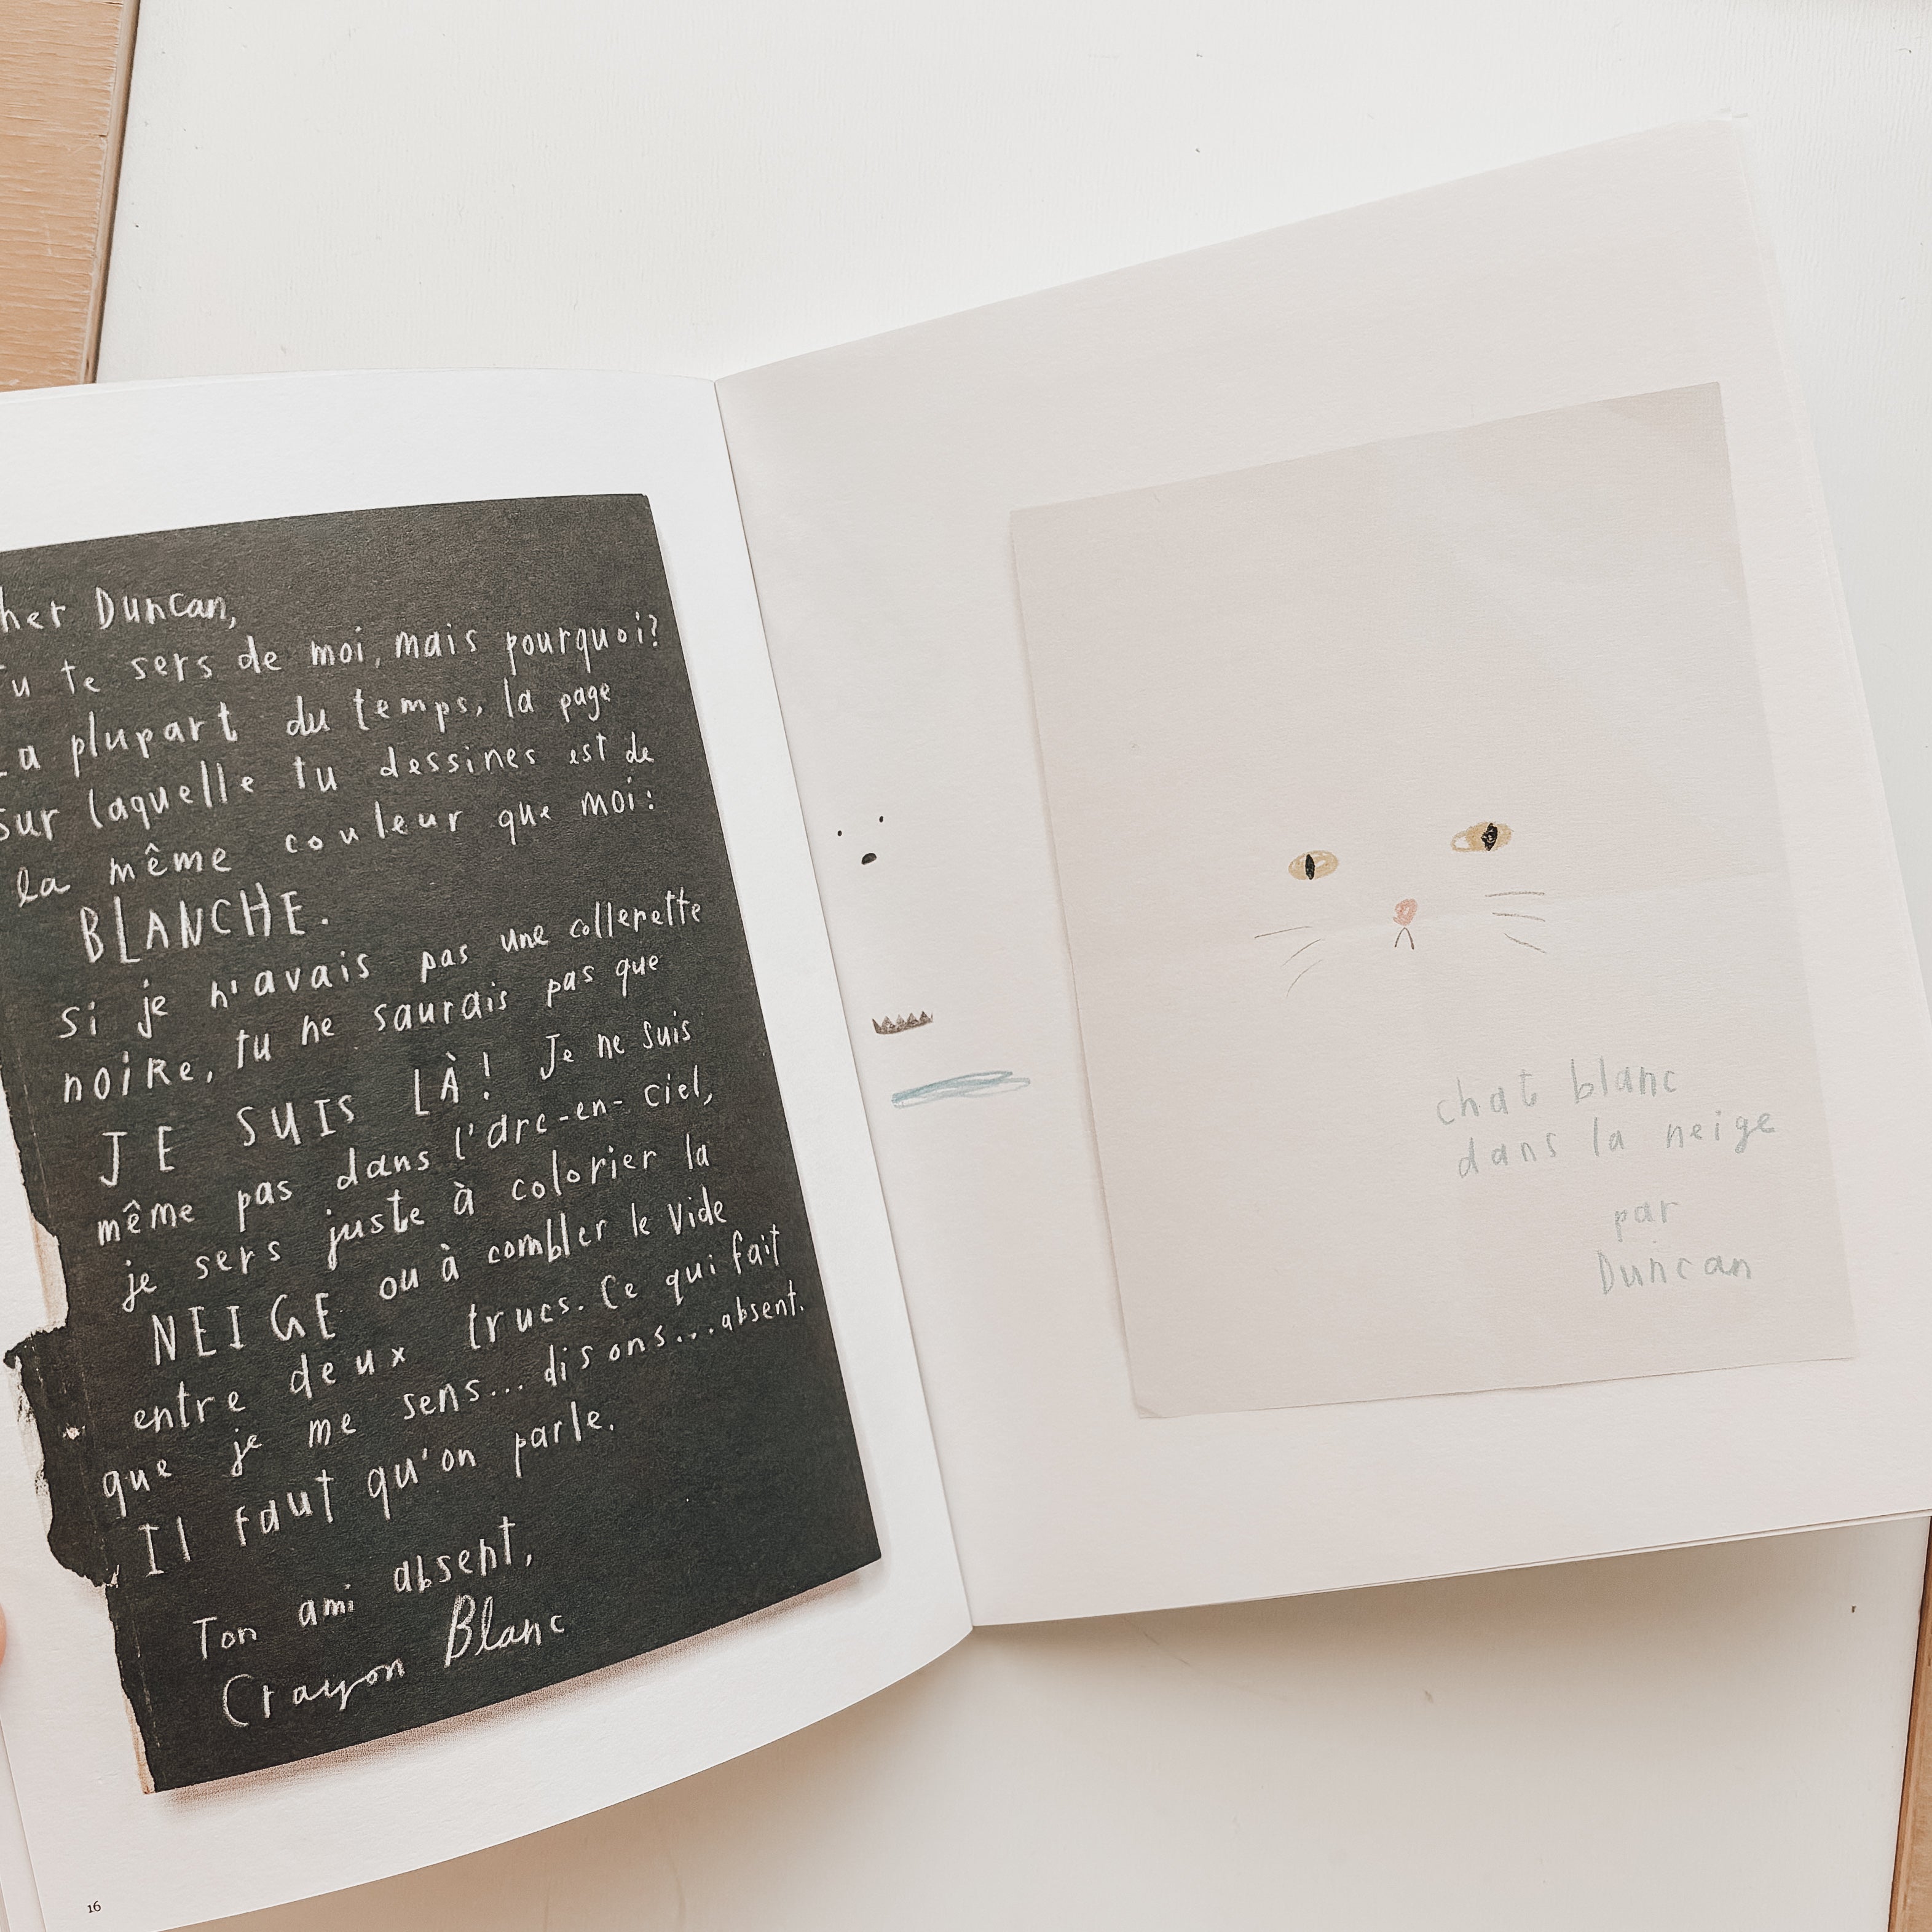 her Duncan,
Tu te sers de moi, mais pourquoi?
La plupart du temps, la page
sur laquelle tu dessines est de
la même couleur que moi:
BLANCHE.
si je n'avais pas une collerette
noire, tu ne saurais pas que
JE SUIS LÀ! Je ne suis
même pas dans l'arc-en-ciel,
je sers juste à colorier la
NEIGE ou à combler le vide
entre deux trucs. Ce qui fait
que je me sens... disons...absent.
Il faut qu'on parle.
Ton ami absent,
Crayon Blanc
16
chat blanc
dans la neige
par
Duncan